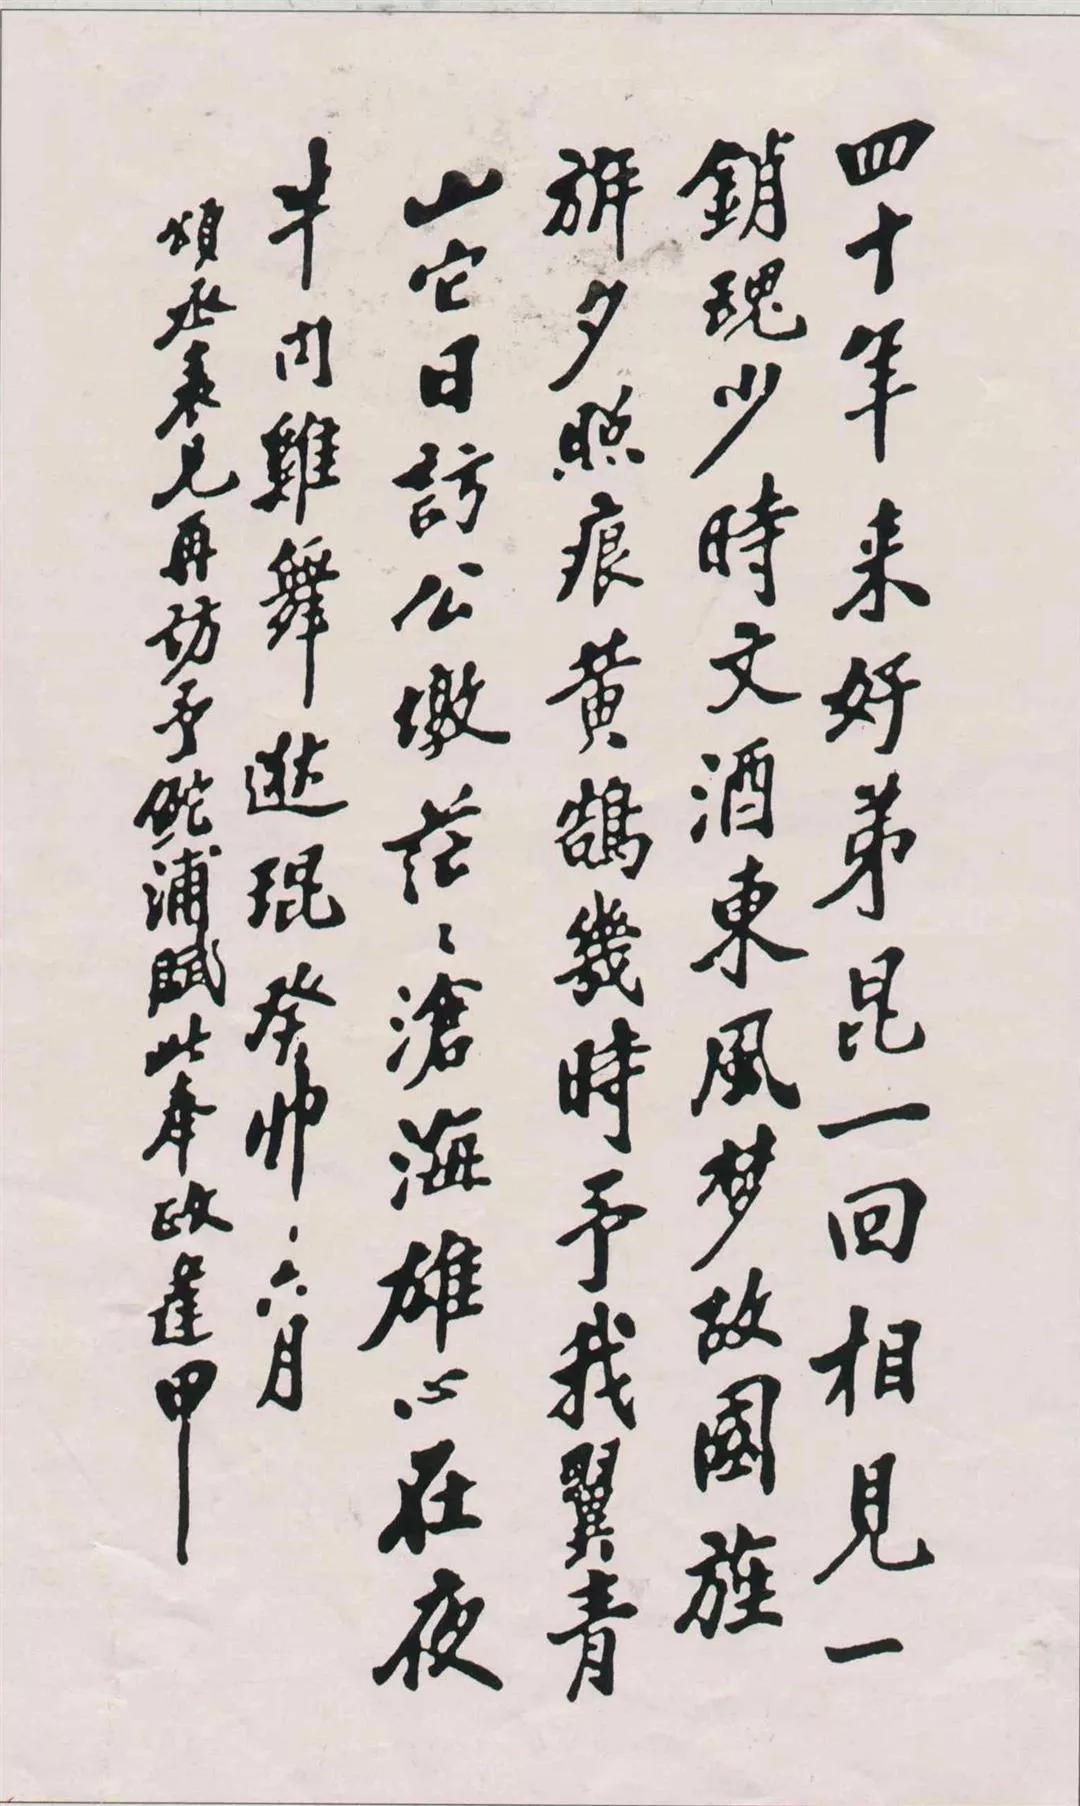 四十年来好弟昆一回相見一
銷瑰少時文酒東風梦故國旌
旃夕照痕黄鵠幾時予我翼青
山它日訪公墩茫〻滄海雄心在夜
半聞雞舞逖琨癸卯六月
頌丞表兄再訪予鮀浦賦此奉政蓬甲